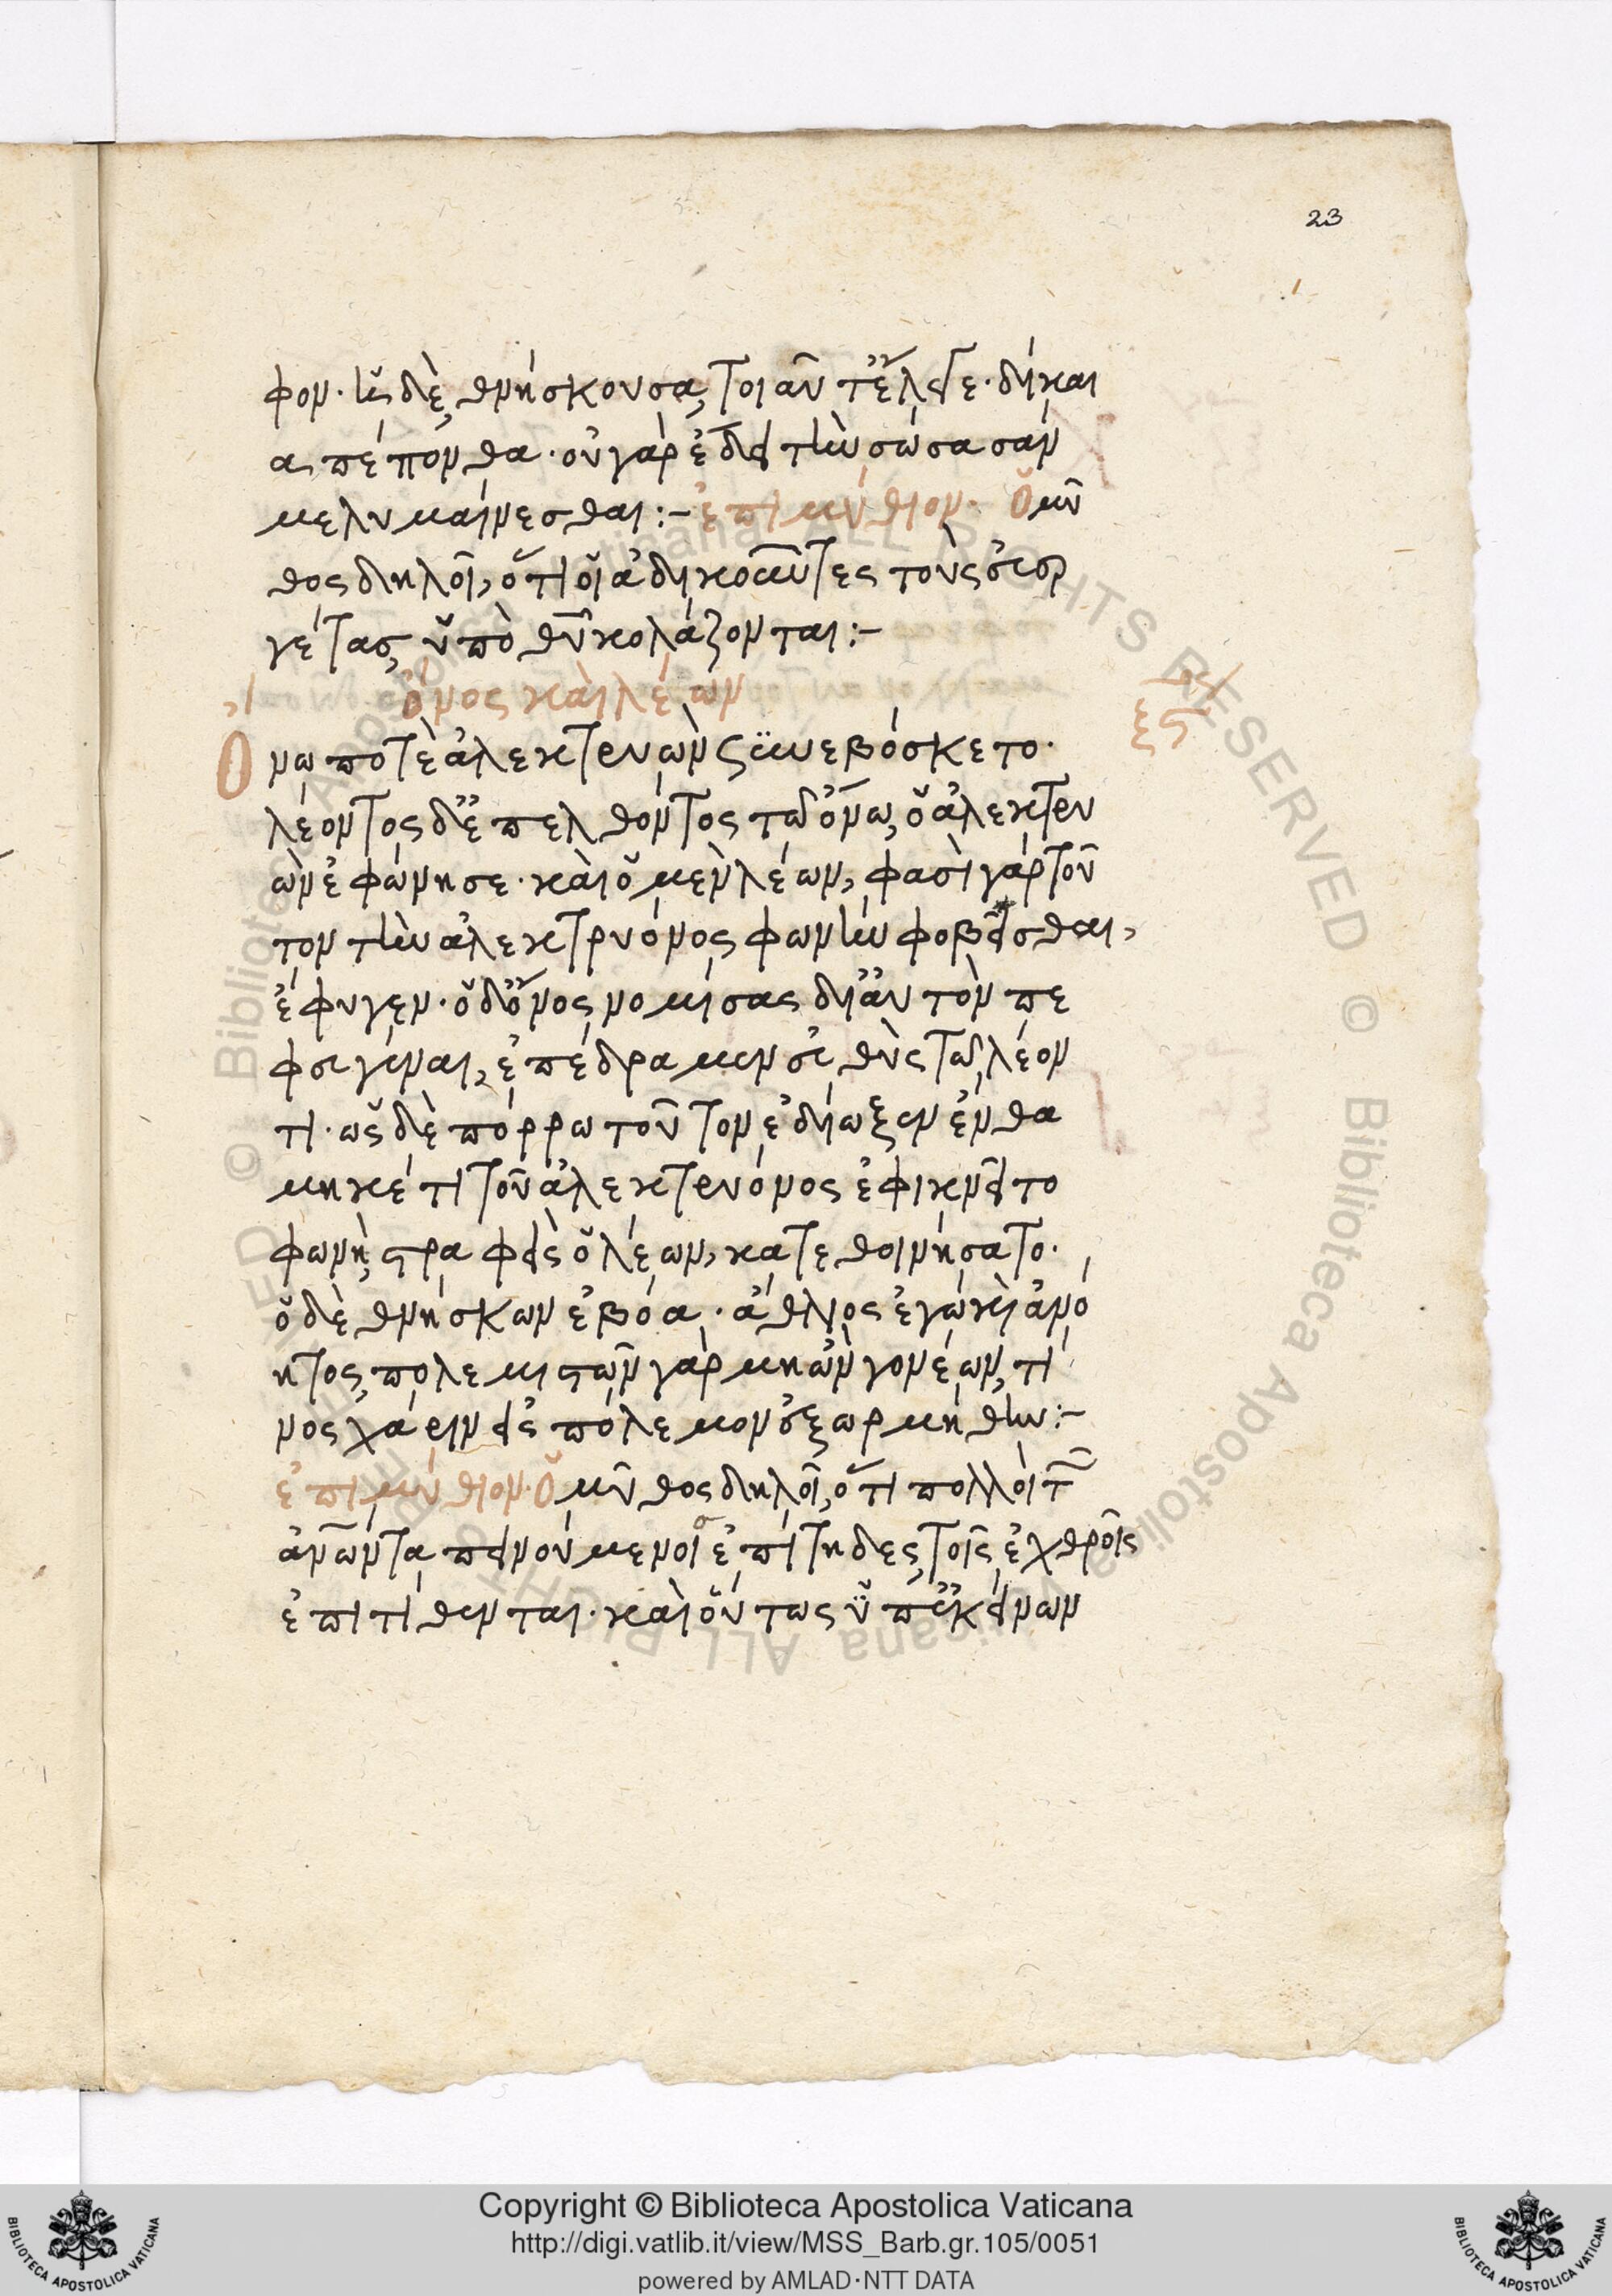 23
φον· ἡ δὲ θνήσκουσα, τοιαῦτ' ἔλεγε· δίκαι
α πέπονθα· οὐ γὰρ ἔδει τὴν σώσασάν
με λυμαίνεσθαι:- ἐπιμύθιον· Ὁ μῦ
θος δηλοῖ, ὅτι οἱ ἀδικοῦντες τοὺς εὐερ
γέτας, ὑπὸ θυ κολάζονται:-
ὄνος καὶ λέων
ξς
Ὄνω ποτὲ ἀλεκτρυὼν συνεβόσκετο·
λέοντος δ' ἐπελθόντος τῷ ὄνω, ὁ ἀλεκτρυ
ὼν ἐφώνησε· καὶ ὁ μὲν λέων, φασὶ γὰρ τοῦ
τον τὴν ἀλεκτρυόνος φωνὴν φοβεῖσθαι,
ἔφυγεν· ὁ δ' ὄνος νομίσας δι' αὐτὸν πε
φευγέναι, ἐπέδραμεν εὐθὺς τῷ λέον
τι· ὡς δὲ πόρρω τοῦτον ἐδίωξεν ἔνθα
μηκέτι τοῦ ἀλεκτρυόνος ἐφικνεῖτο
φωνὴ, στραφεὶς ὁ λέων, κατεθοινήσατο·
ὁ δὲ θνήσκων ἐβόα· ἄθλιος ἐγὼ καὶ ἀνό
ητος, πολεμιστῶν γὰρ μὴ ὢν γονέων, τί
νος χάριν εἰς πόλεμον ἐξωρμήθην:-
ἐπιμύθιον· Ὁ μῦθος δηλοῖ, ὅτι πολλοὶ τ
ἀνων τα πεινουμένοις ἐπίτηδες τοῖς ἐχθροῖς
ἐπιτίθενται· καὶ οὕτως ὑπ' ἐκείνων
Copyright © Biblioteca Apostolica Vaticana
http://digi.vatlib.it/view/MSS_Barb.gr.105/0051
powered by AMLAD·NTT DATA
BIBLIOTECA APOSTOLICA VATICANA
BIBLIOTECA APOSTOLICA VATICANA